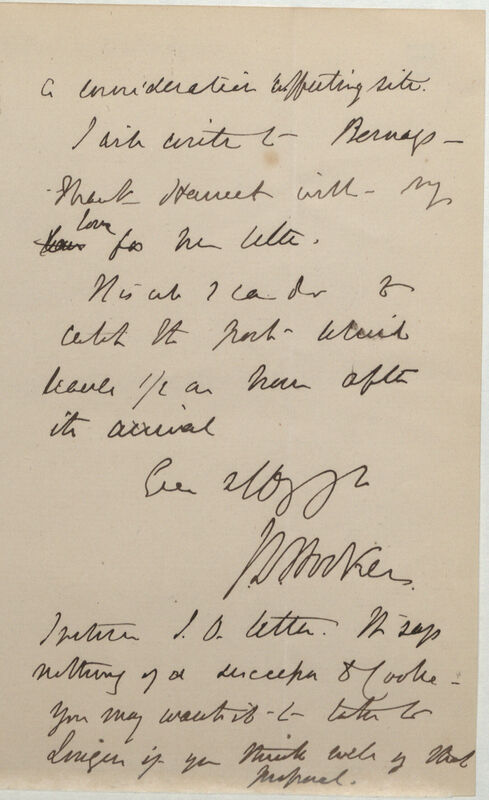 a consideration affecting site.
I will write to Bernays —
Thank Harriet with my
love for her letter.
It is all I can do to
catch the post which
leaves 1/2 an hour after
its arrival
Ever aff
J D Hooker.
I return I. O. letter. It says
nothing of a successor to Cooke —
You may want it to take to
if you think well of that
proposal.